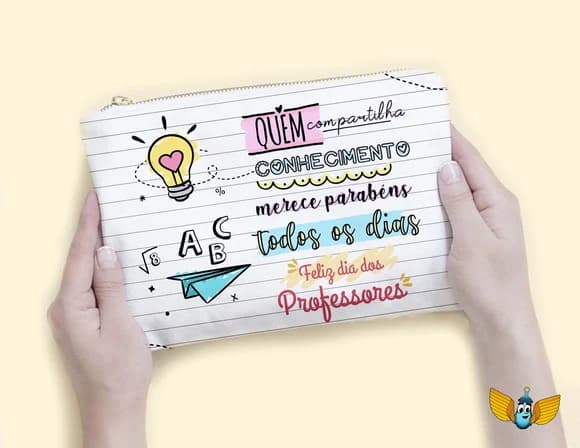 QUEM compartilha
CONHECIMENTO
merece parabéns
todos os dias
Feliz dia dos
Professores
%
A B C
√8
x